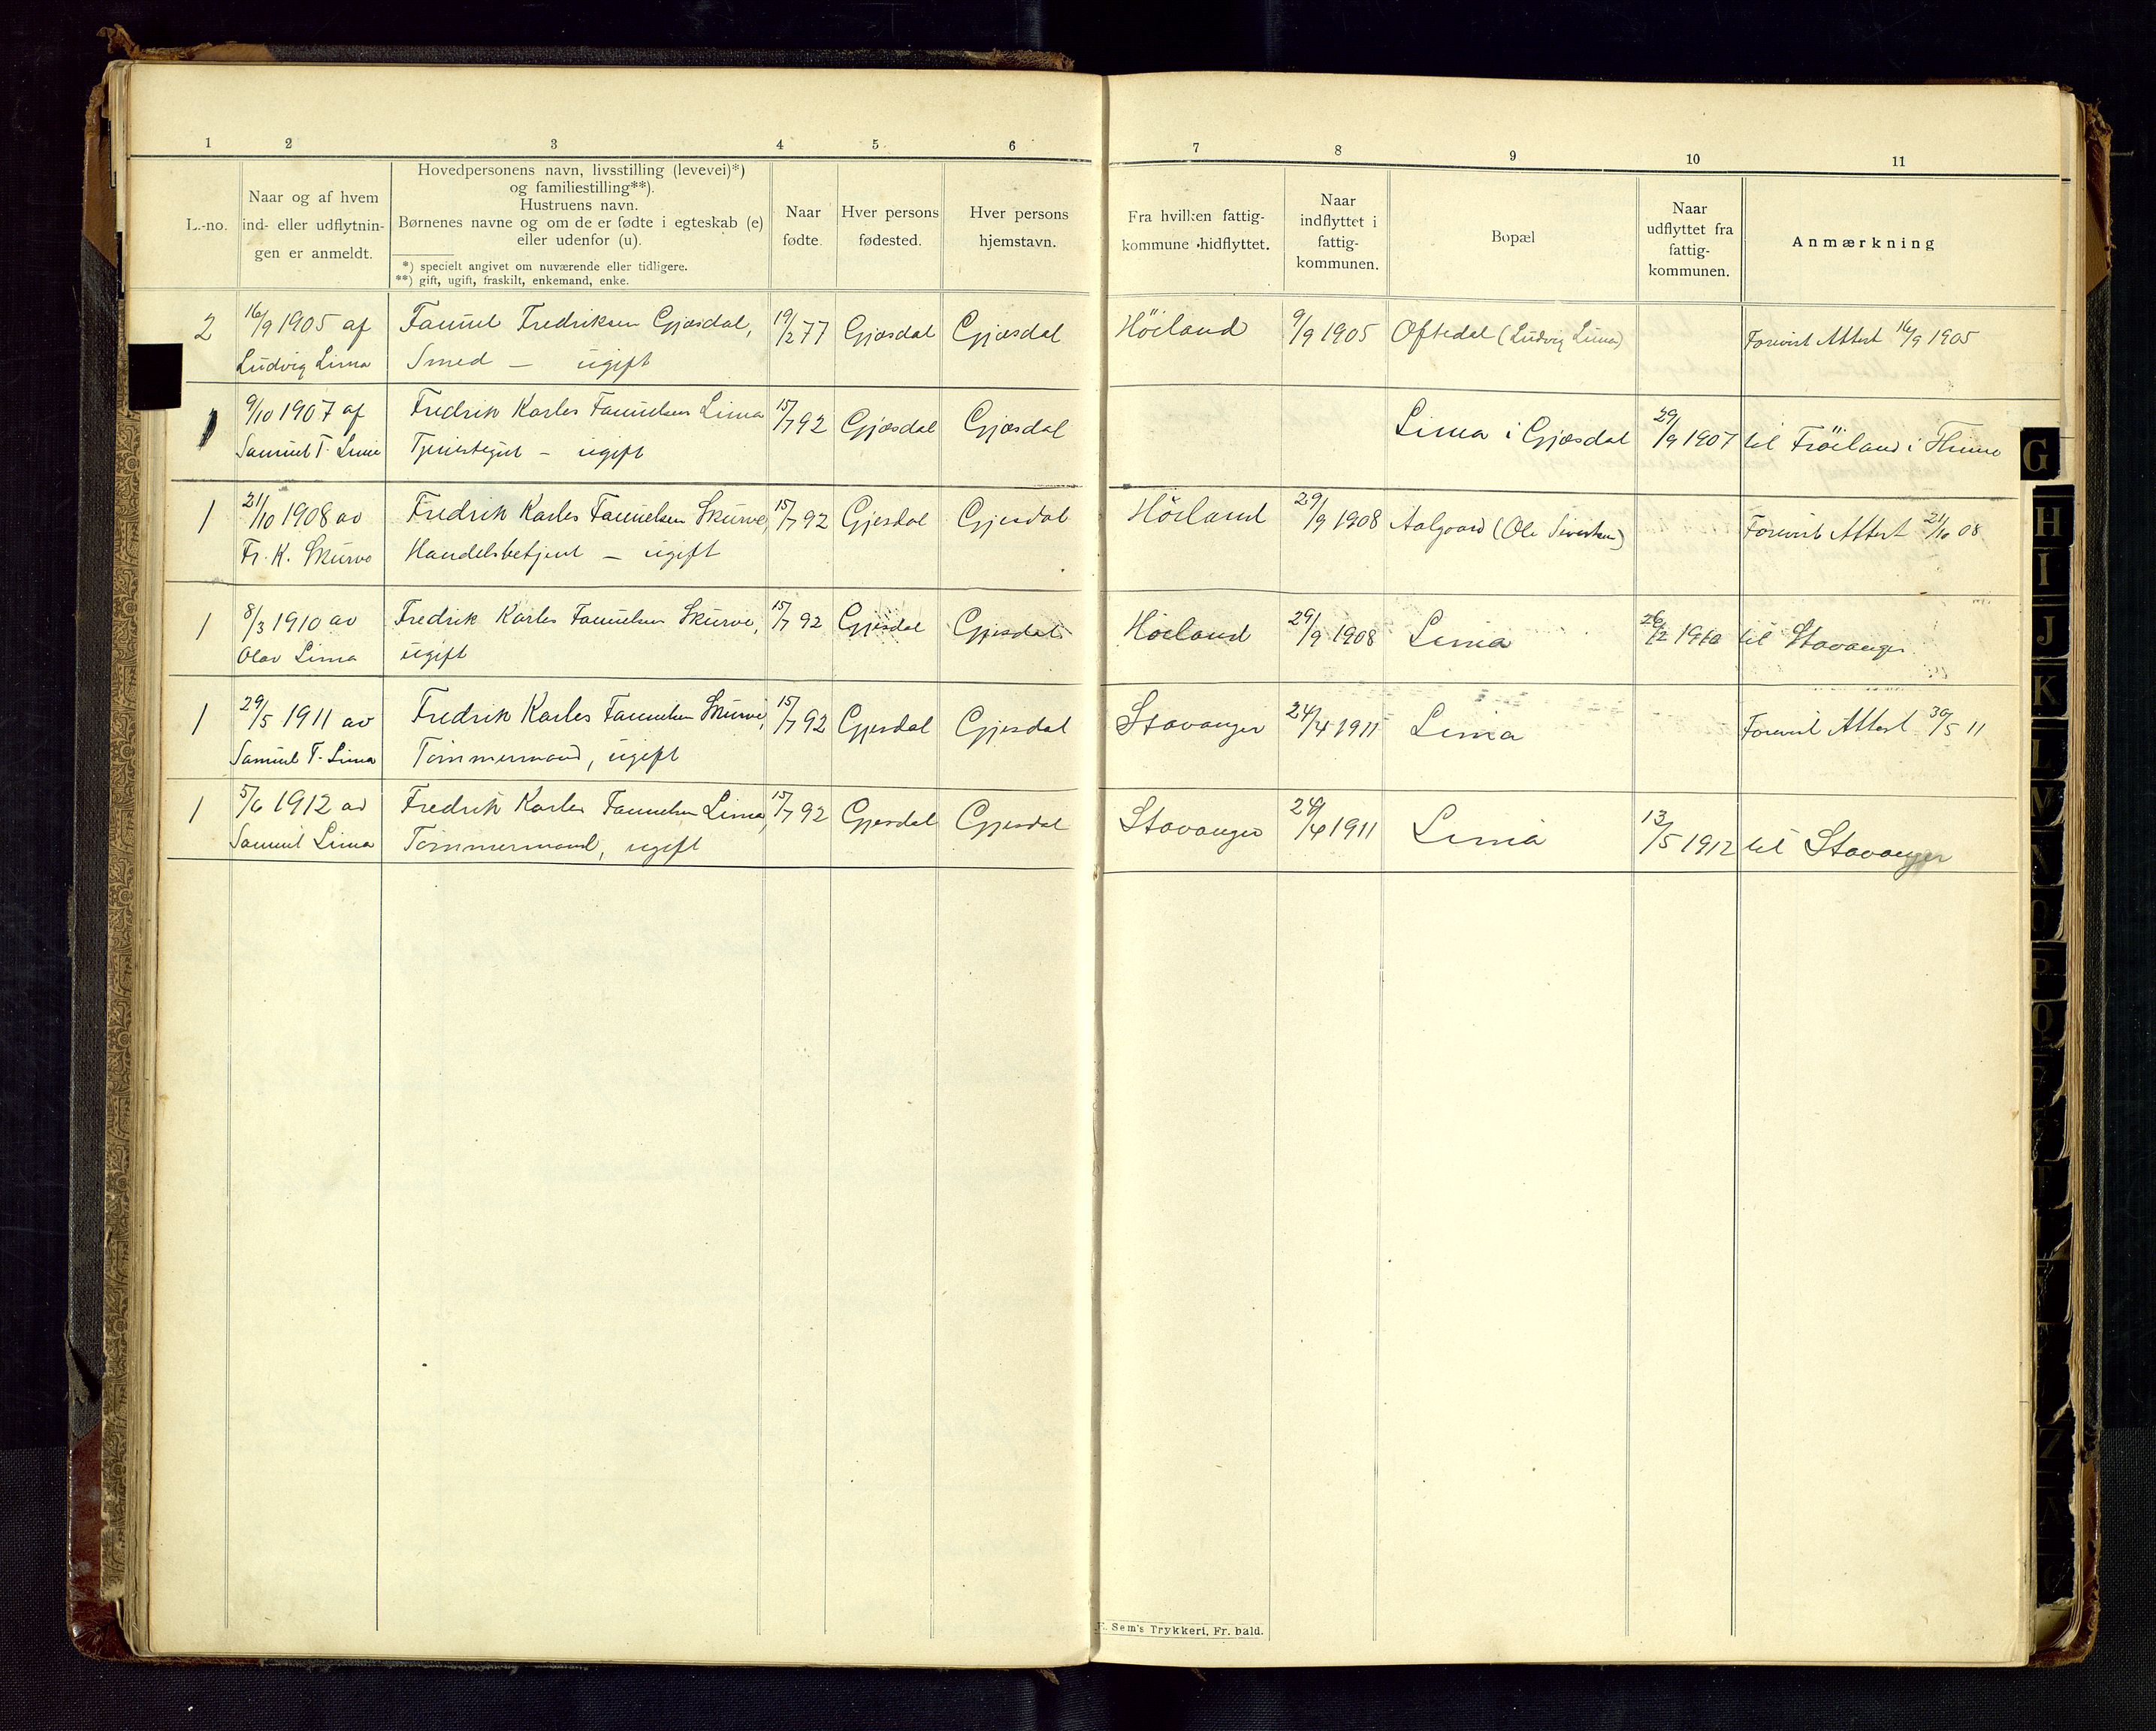 1 2 3 4 5 6 7 8 9 10 11
L.-no.
Naar og af hvem
ind- eller udflytnin-
gen er anmeldt.
Hovedpersonens navn, livsstilling (levevei)*)
og familiestilling**).
Hustruens navn.
Børnenes navne og om de er fødte i egteskab (e)
eller udenfor (u).
*) specielt angivet om nuværende eller tidligere.
**) gift, ugift, fraskilt, enkemand, enke.
Naar
fødte.
Hver persons
fødested.
Hver persons
hjemstavn.
Fra hvilken fattig-
kommune hidflyttet.
Naar
indflyttet i
fattig-
kommunen.
Bopæl
Naar
udflyttet fra
fattig-
kommunen.
Anmærkning
2 16/9 1905 af Famuel Fredriksen Gjæsdal, 19/2 77 Gjæsdal Gjæsdal Höiland 9/9 1905 Oftedal (Ludvig Lima) Forevist Attest 16/9 1905
Ludvig Lima Smed — ugift
1 9/10 1907 af Fredrik Karles Famuelsen Lima 15/7 92 Gjæsdal Gjæsdal Lima i Gjæsdal 29/9 1907 til Fröiland i Thime
Samuel T. Lima Tjenestegut — ugift
1 21/10 1908 av Fredrik Karles Famuelsen Skurve, 15/7 92 Gjesdal Gjesdal Höiland 29/9 1908 Aalgaard (Ole Sivertsen) Forevist Attest 21/10 08
Fr. K. Skurve Handelsbetjent — ugift
1 8/3 1910 av Fredrik Karles Famuelsen Skurve, 15/7 92 Gjesdal Gjesdal Höiland 29/9 1908 Lima 26/2 1910 til Stavanger
Olav Lima ugift
1 29/5 1911 av Fredrik Karles Famuelsen Skurve, 15/7 92 Gjesdal Gjesdal Stavanger 24/4 1911 Lima Forevist Attest 30/5 11
Samuel T. Lima Tömmermand, ugift
1 5/6 1912 av Fredrik Karles Famuelsen Lima, 15/7 92 Gjesdal Gjesdal Stavanger 24/4 1911 Lima 13/5 1912 til Stavanger
Samuel Lima Tömmermand, ugift
E. Sem's Trykkeri, Fr. hald.
G
H
I
J
K
L
M
N
O
P